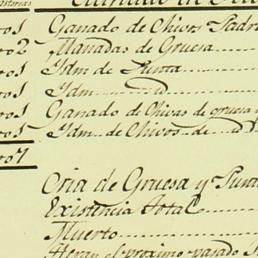 ro 1 Ganado de Chivos Padr
ro 2 Manadas de Gruesa
ro 1 Idm de Punta
ro 1 Idm d
ro 1 Ganado de Chivas de gruesa
ro 1 Idm de Chivos de d
ro 7
Cria de Gruesa y Punt
Existencia total
Muerto
Heran el proximo pasado